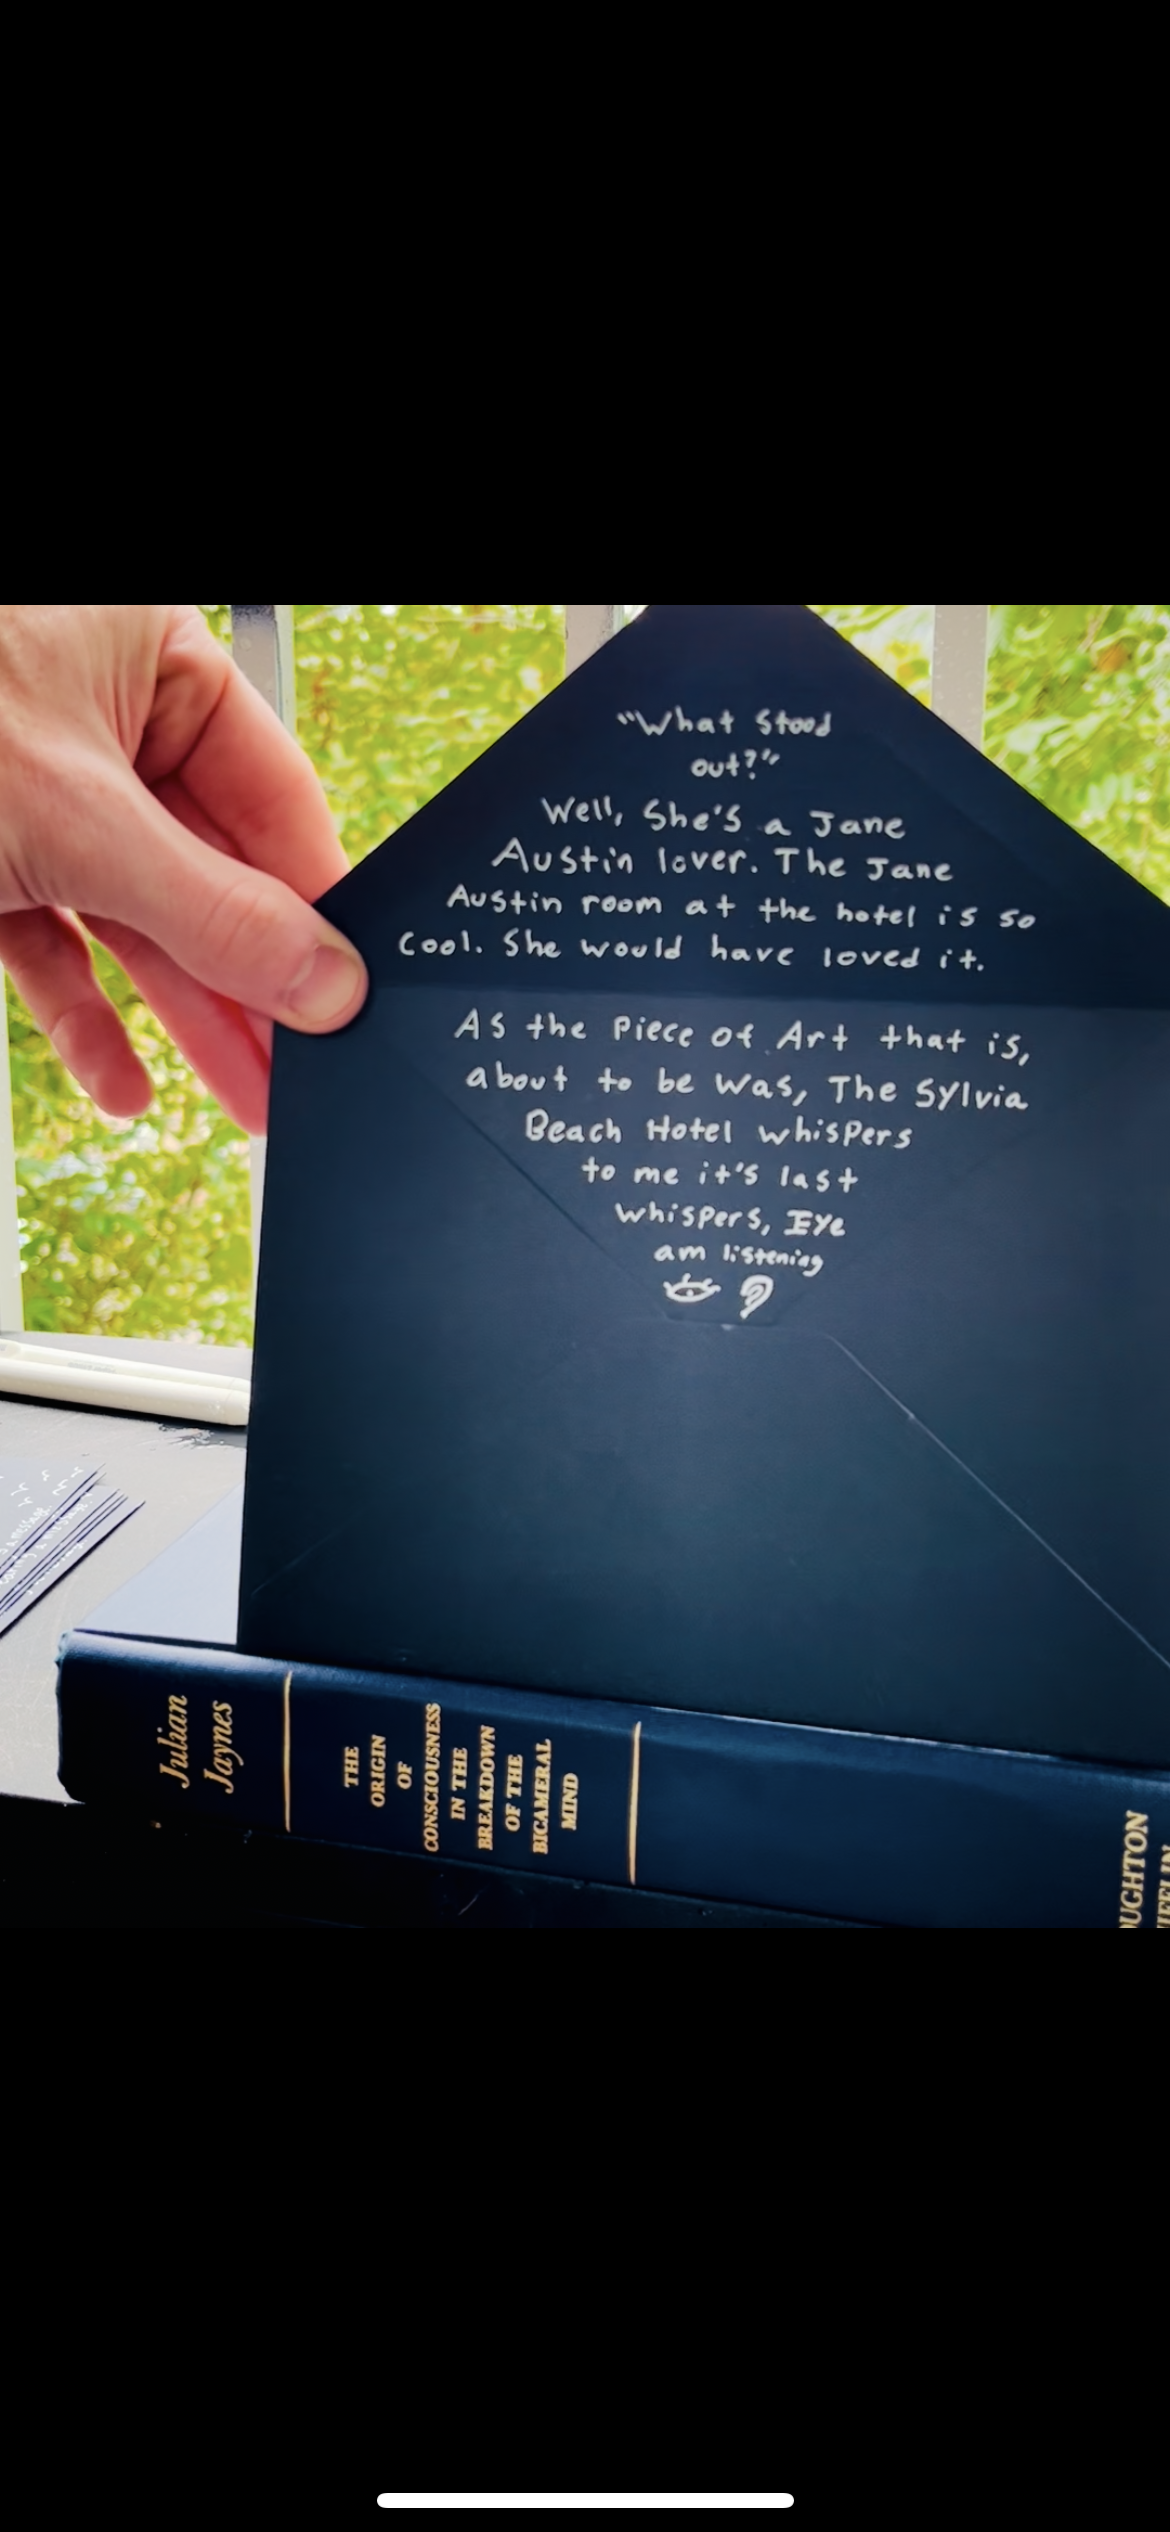 "What Stood
out?"
Well, She's a Jane
Austin lover. The Jane
Austin room at the hotel is so
cool. She would have loved it.
As the Piece of Art that is,
about to be was, The Sylvia
Beach Hotel whispers
to me it's last
whispers, Eye
am listening
Julian
Jaynes
THE
ORIGIN
OF
CONSCIOUSNESS
IN THE
BREAKDOWN
OF THE
BICAMERAL
MIND